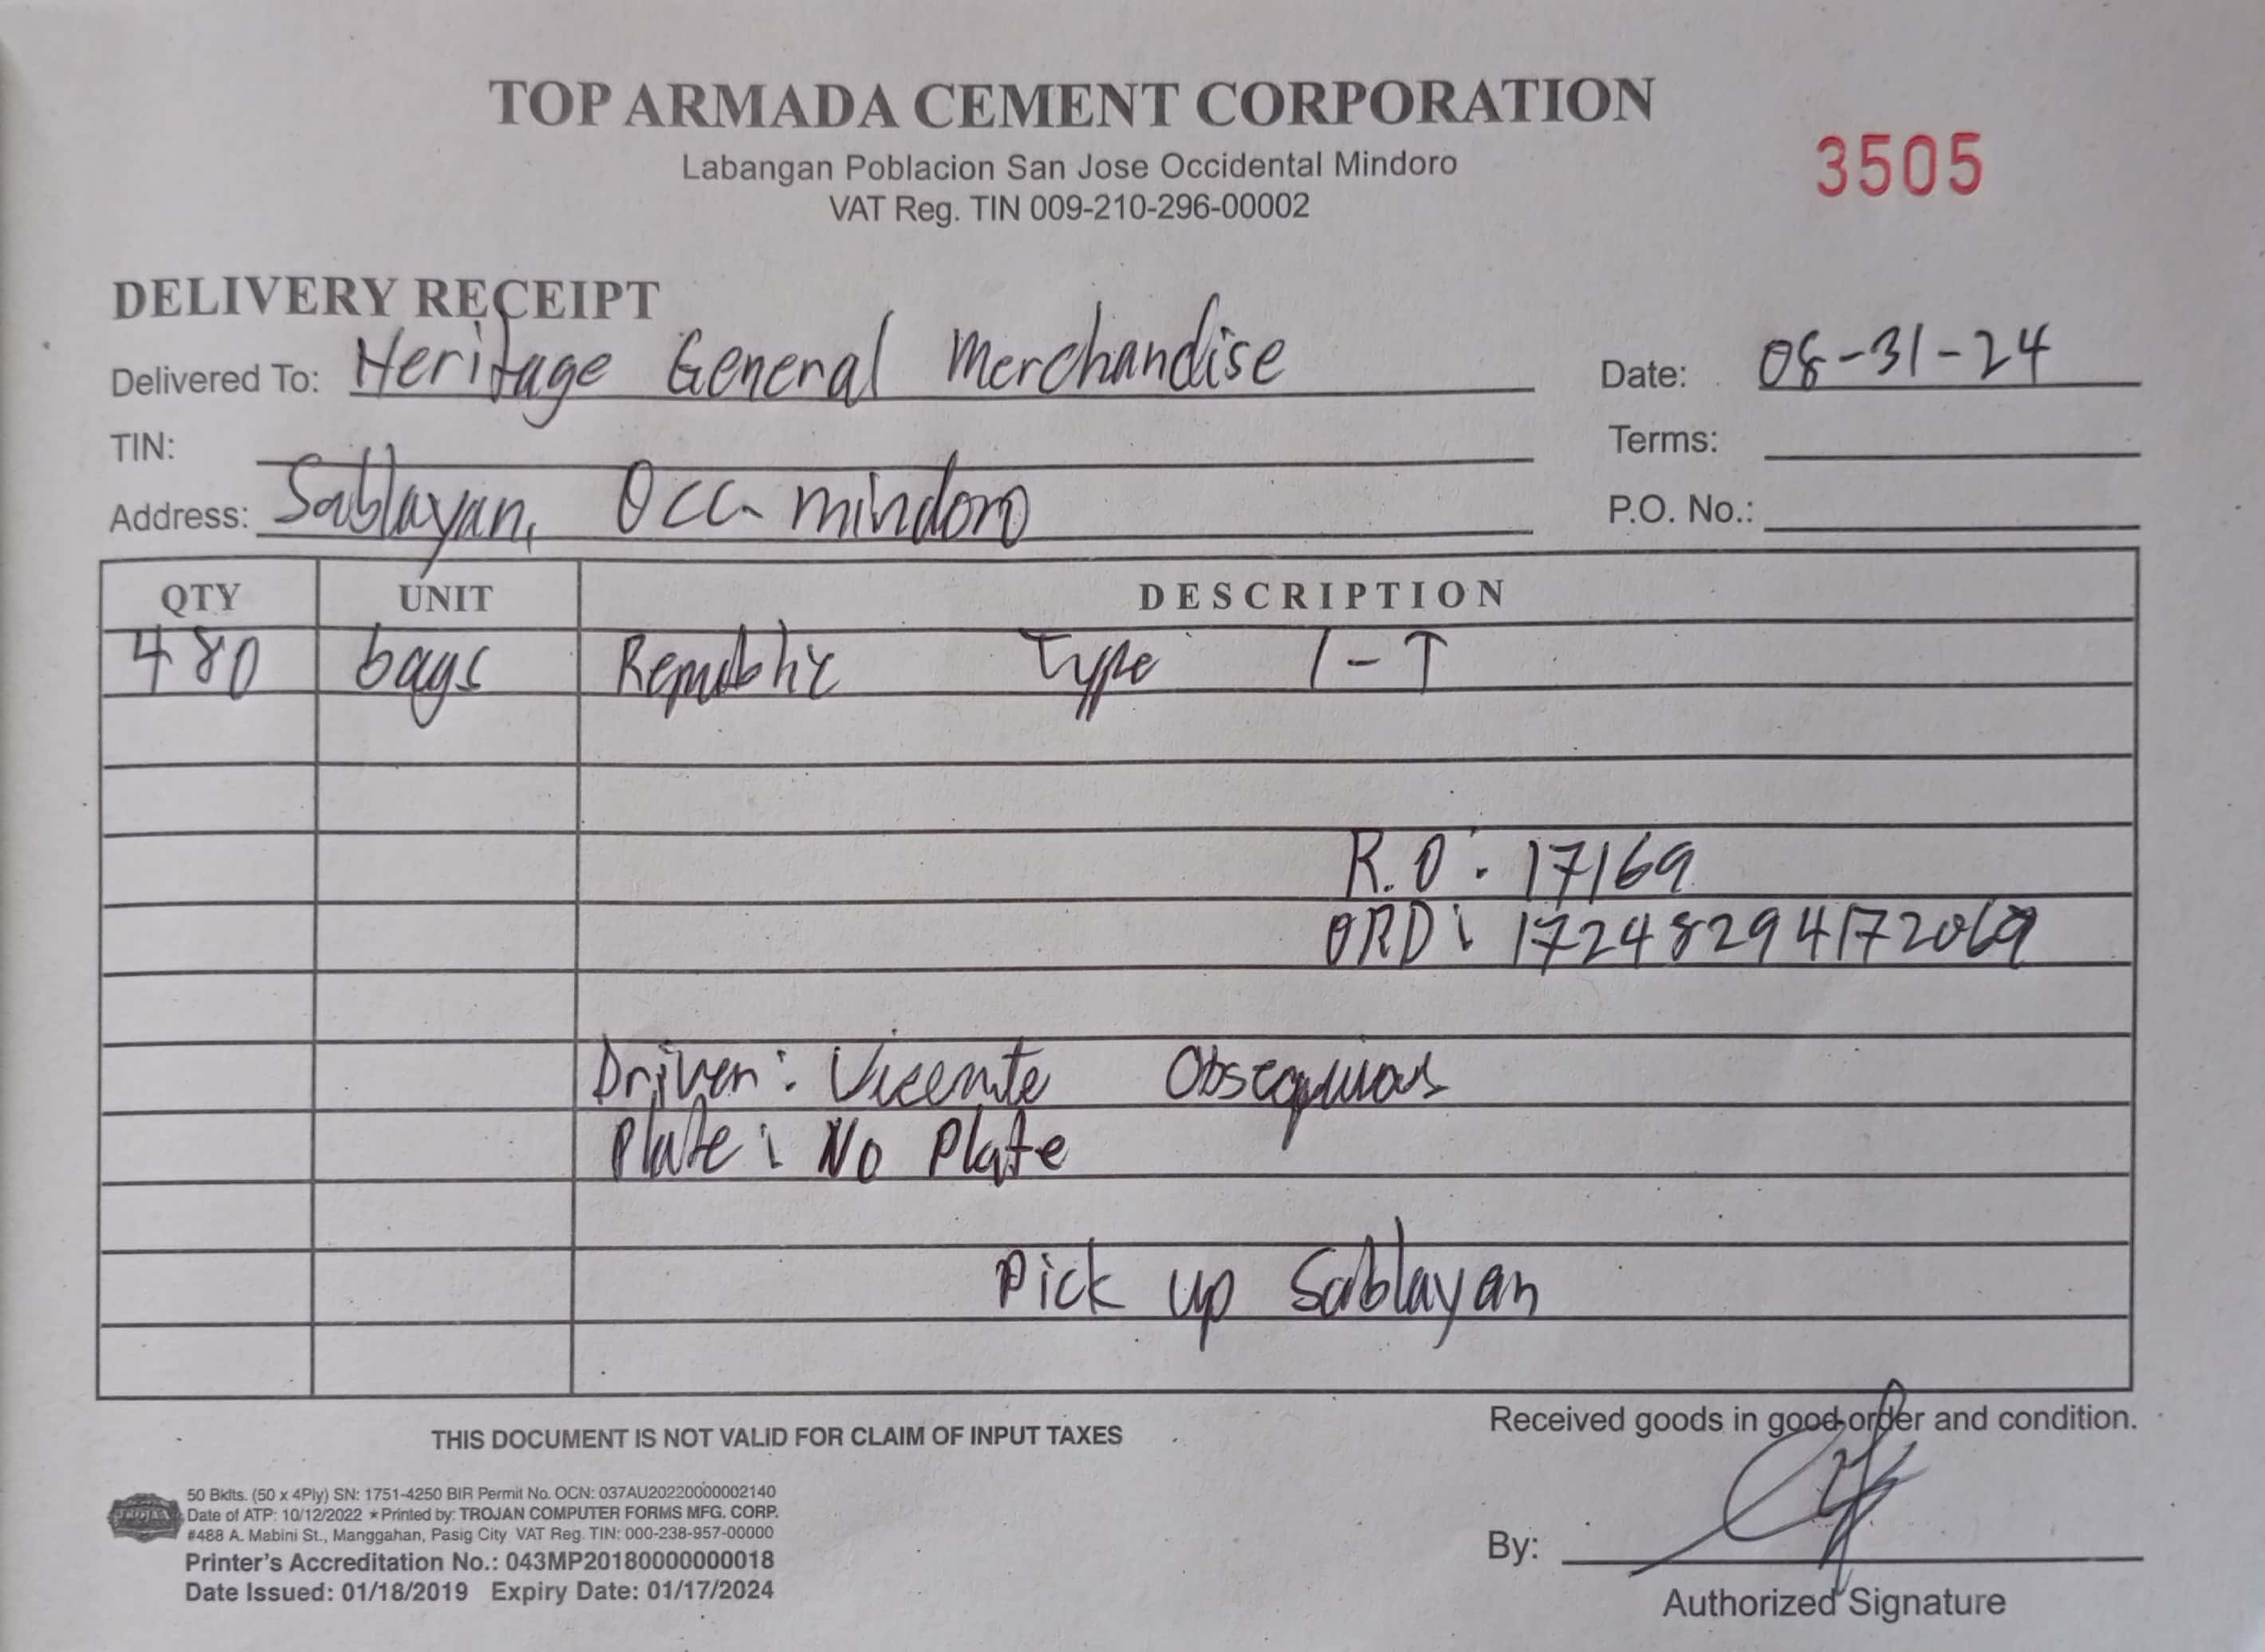 TOP ARMADA CEMENT CORPORATION
Labangan Poblacion San Jose Occidental Mindoro
VAT Reg. TIN 009-210-296-00002
3505
DELIVERY RECEIPT
Delivered To: Heritage General Merchandise
Date: 08-31-24
TIN:
Terms:
Address: Sablayan, Occ. Mindoro
P.O. No.:
QTY UNIT DESCRIPTION
480 bags Republic Type 1-T
R.O: 17169
ORD: 17248294172069
Driver: Vicente Obsequious
Plate: No Plate
Pick up Sablayan
THIS DOCUMENT IS NOT VALID FOR CLAIM OF INPUT TAXES
Received goods in good order and condition.
50 Bklts. (50 x 4Ply) SN: 1751-4250 BIR Permit No. OCN: 037AU20220000002140
Date of ATP: 10/12/2022 ★Printed by: TROJAN COMPUTER FORMS MFG. CORP.
#488 A. Mabini St., Manggahan, Pasig City VAT Reg. TIN: 000-238-957-00000
Printer's Accreditation No.: 043MP20180000000018
Date Issued: 01/18/2019 Expiry Date: 01/17/2024
TROJAN
By:
Authorized Signature